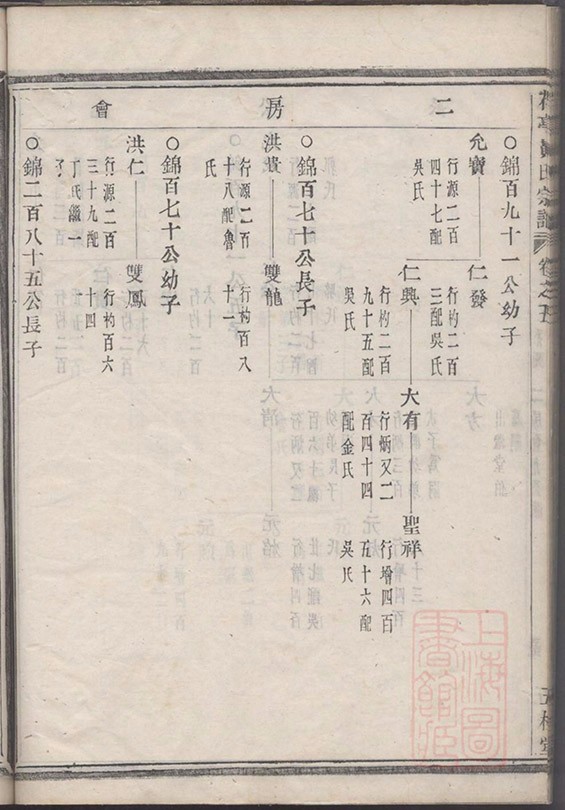 二房會
○錦百九十一公幼子
允寶
行源二百
四十七配
吳氏
仁發
行杓二百
三配吳氏
仁興
行杓二百
九十五配
吳氏
大有
行炳又二
百四十四
配金氏
聖祥
行增四百
五十六配
吳氏
○錦百七十公長子
洪貴
行源二百
十八配魯
氏
雙龍
行杓百八
十一
○錦百七十公幼子
洪仁
行源二百
三十九配
丁氏繼一
子
雙鳳
行杓百六
十四
○錦二百八十五公長子
宗譜
卷之五
上海圖書館藏